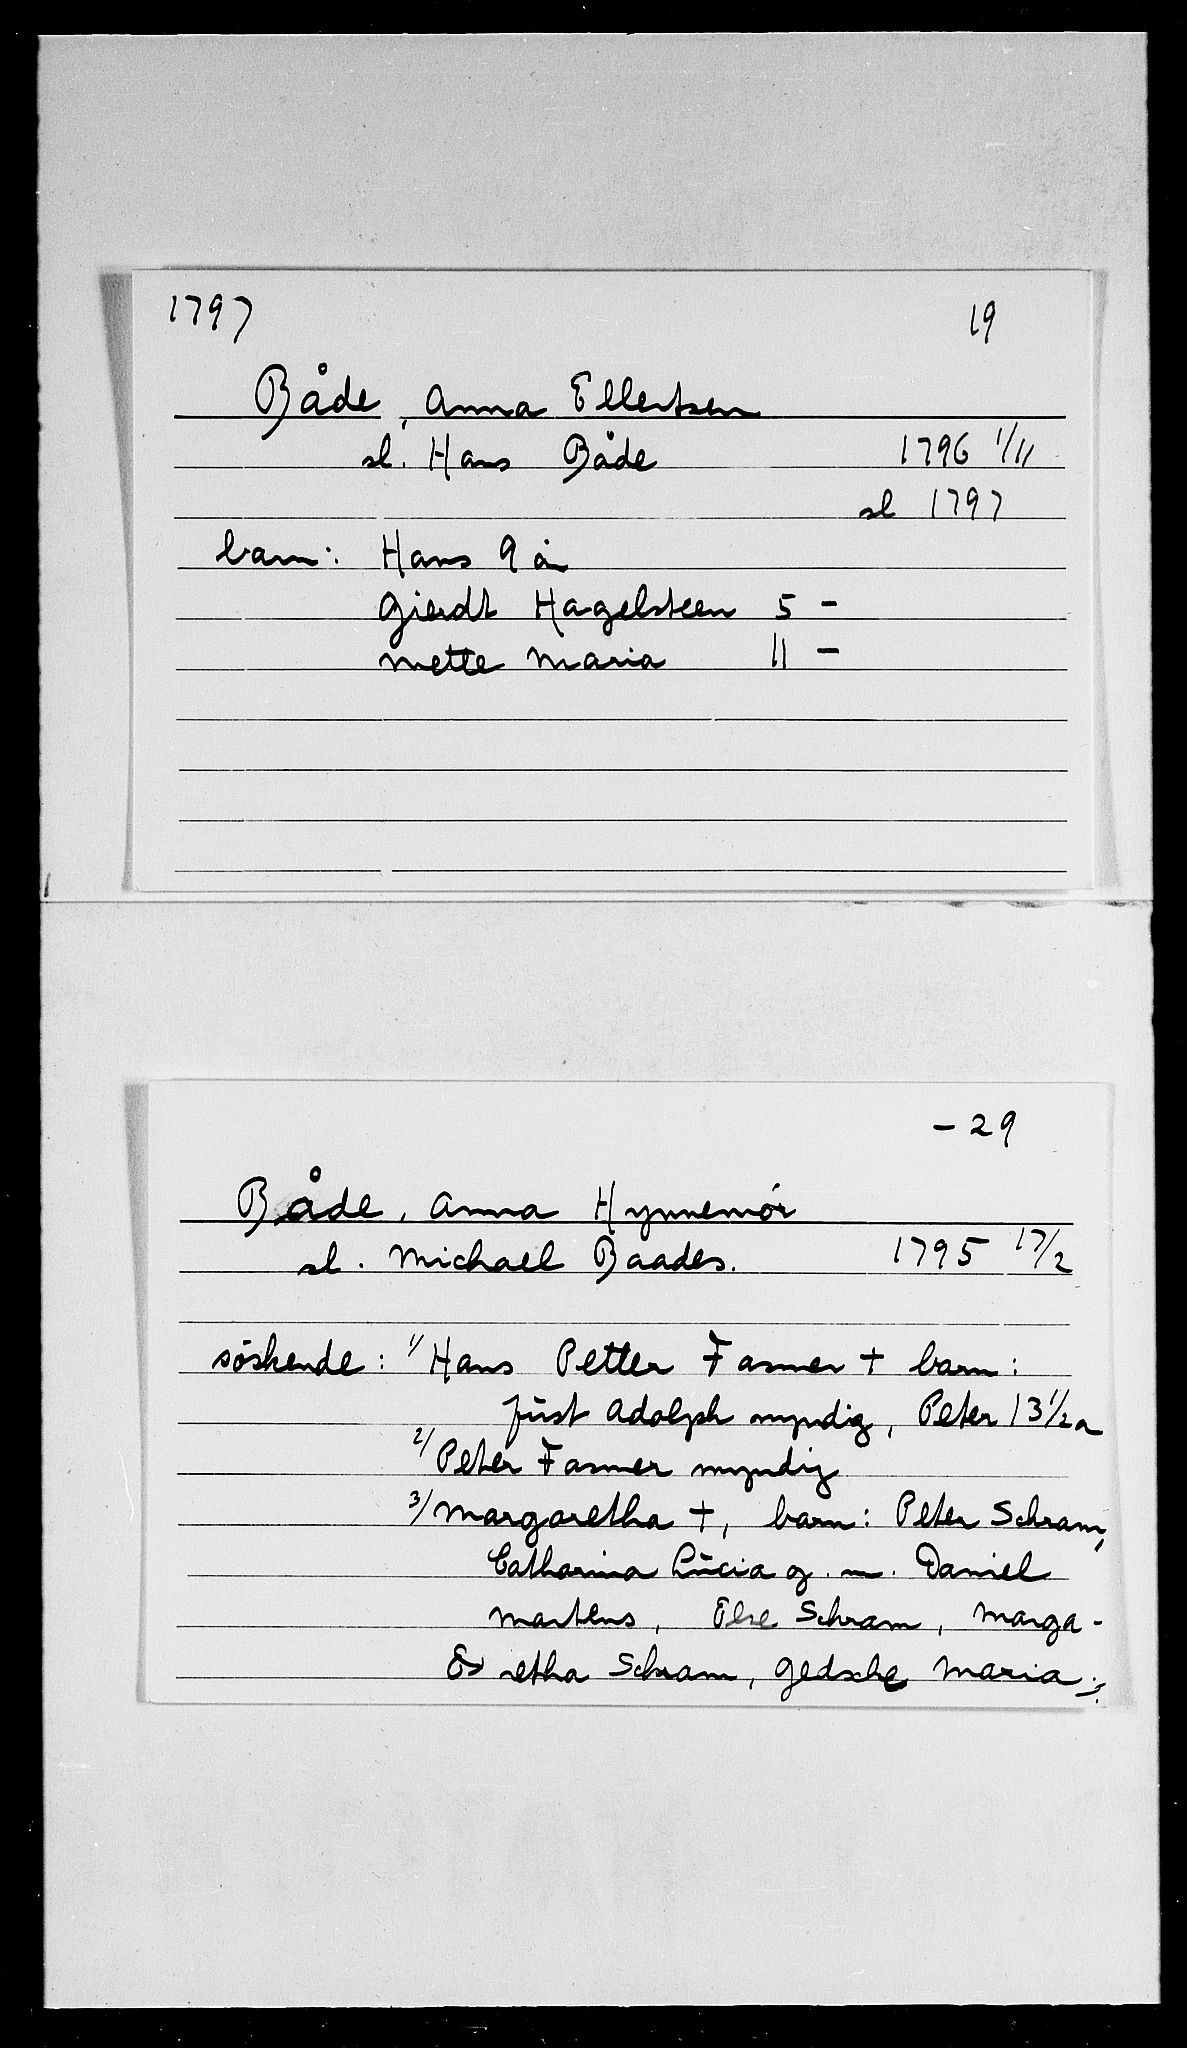 1797 19
Både, Anna Ellertsen
sl. Hans Både 1796 1/11
sl 1797
barn: Hans 9 år
Gierdt Hagelsteen 5 -
Mette Maria 11 -
- 29
Både, Anna Hynnemör
sl. Michael Baades. 1795 17/2
söskende: 1/ Hans Petter Fasmer + barn:
Just Adolph myndig, Peter 13 1/2 a
2/ Peter Fasmer myndig
3/ Margaretha +, barn: Peter Schram,
Catharina Lucia g. m. Daniel
Martens, Else Schram, Marga-
retha Schram, Gedsche Maria